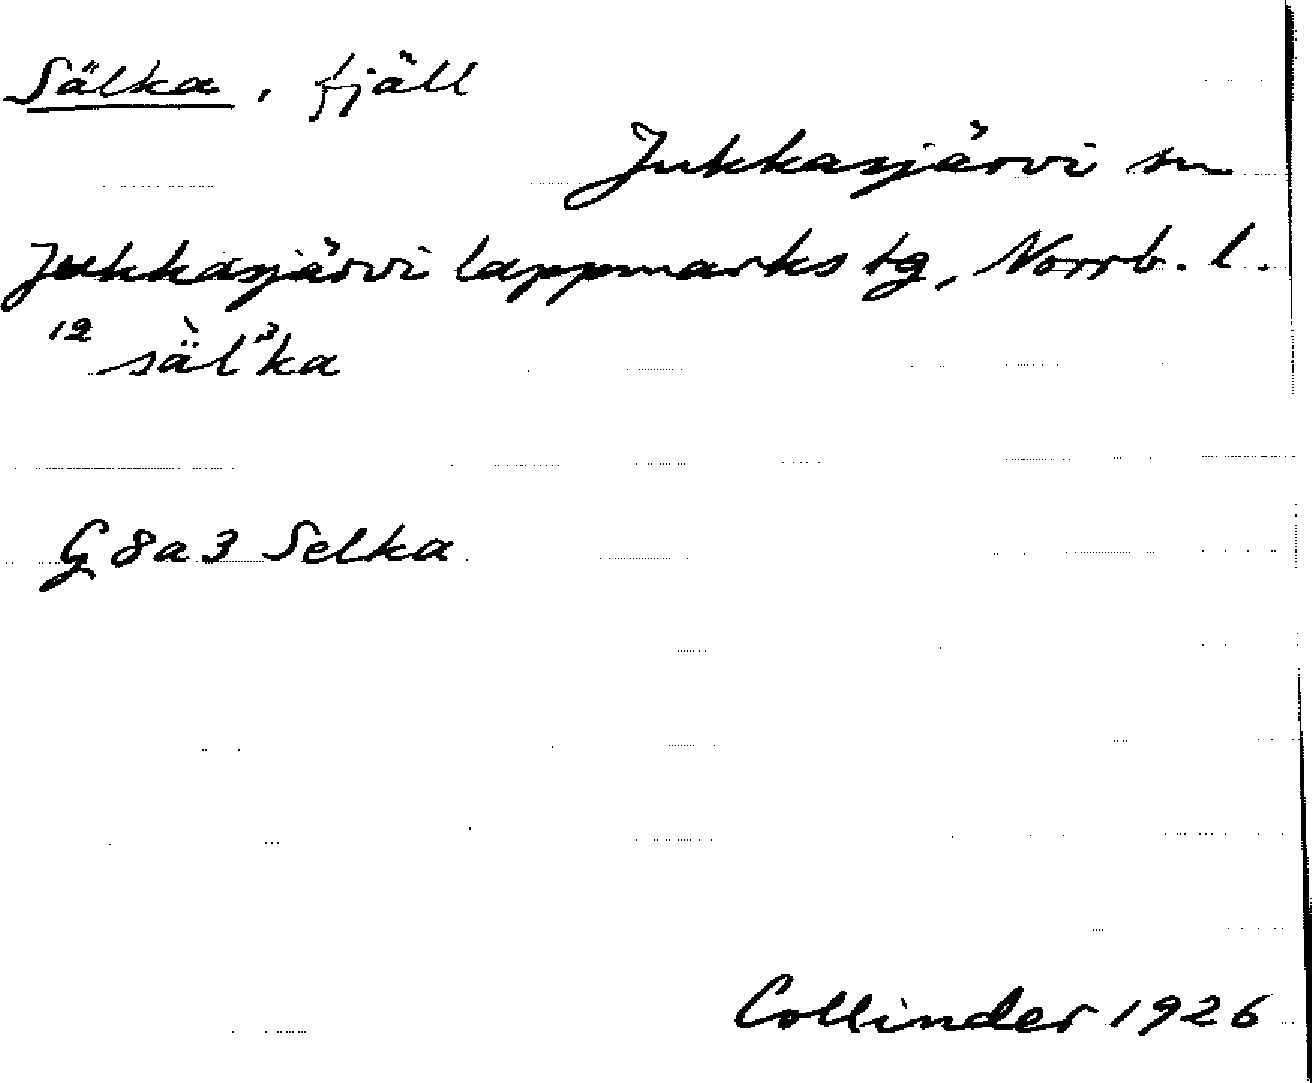 Sälka, fjäll
Jukkasjärvi sn
Jukkasjärvi lappmarks tg, Norrb. l.
12 sä̀l³ka
G 8 a 3 Selka
Collinder 1926